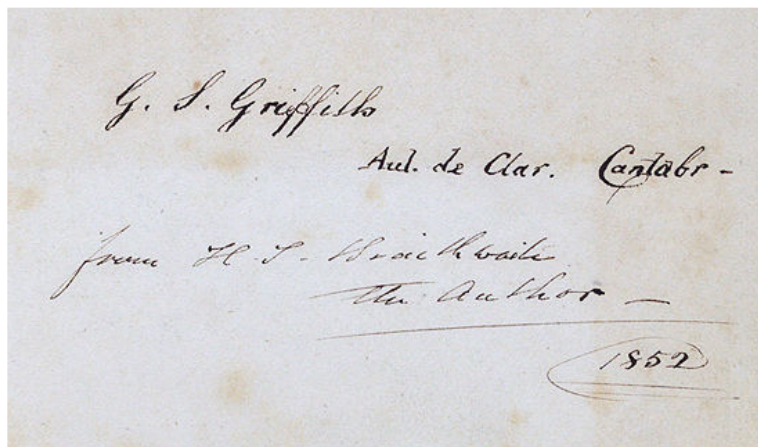 G. S. Griffith
Aul. de Clar. Cantabr -
from H. T. Braithwaite
the Author —
1852